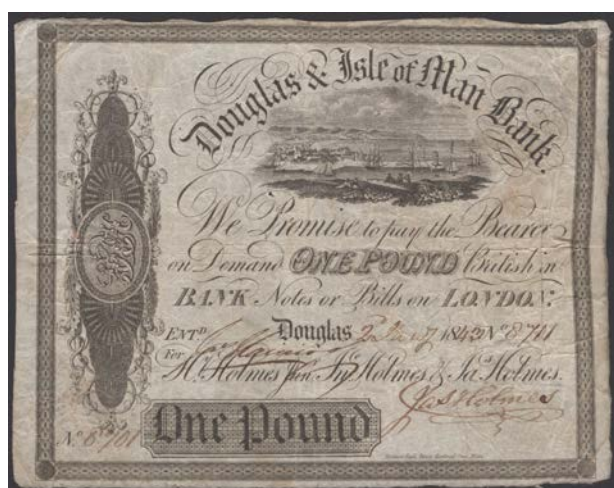 Douglas & Isle of Man Bank.
We Promise to pay the Bearer
on Demand ONE POUND British in
BANK Notes or Bills on LONDON:
ENTD Douglas 1842 No 8701
For Hy Holmes Jno Holmes & Jas Holmes.
Jas Holmes
No 8701 One Pound